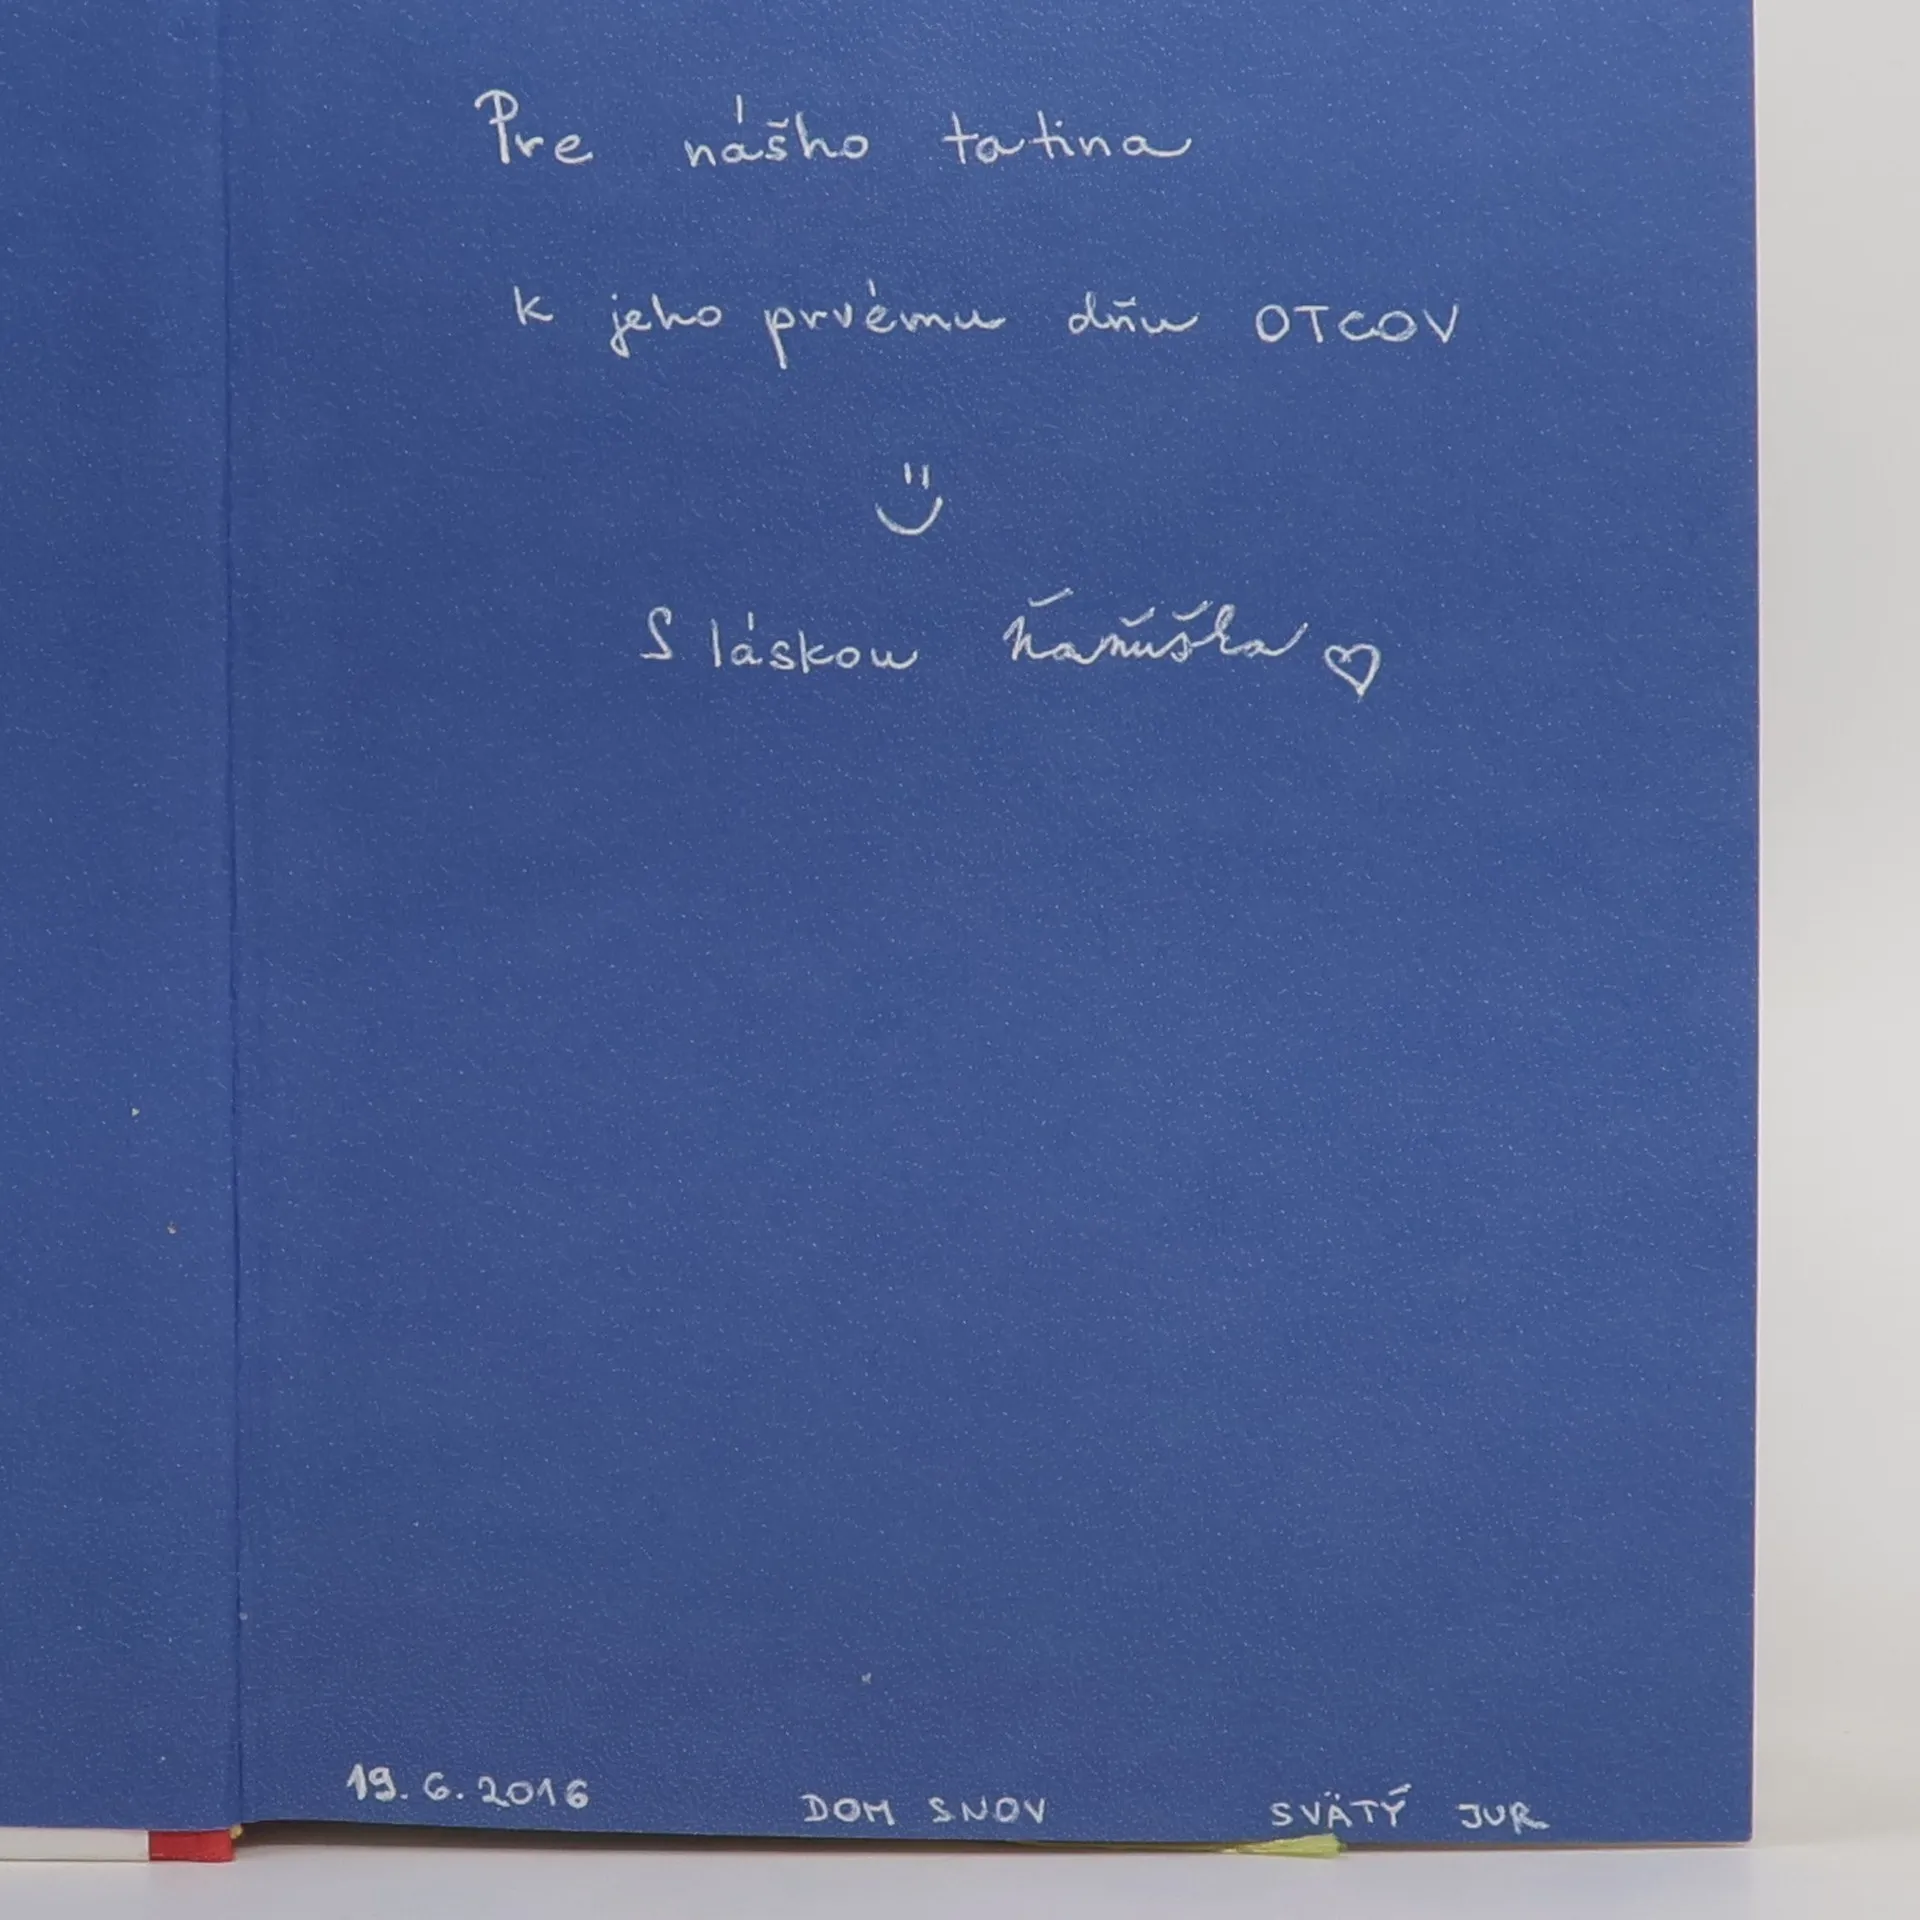 Pre nášho tatina
k jeho prvému dňu OTCOV
S láskou Ňaňuška
19.6.2016 DOM SNOV SVÄTÝ JUR